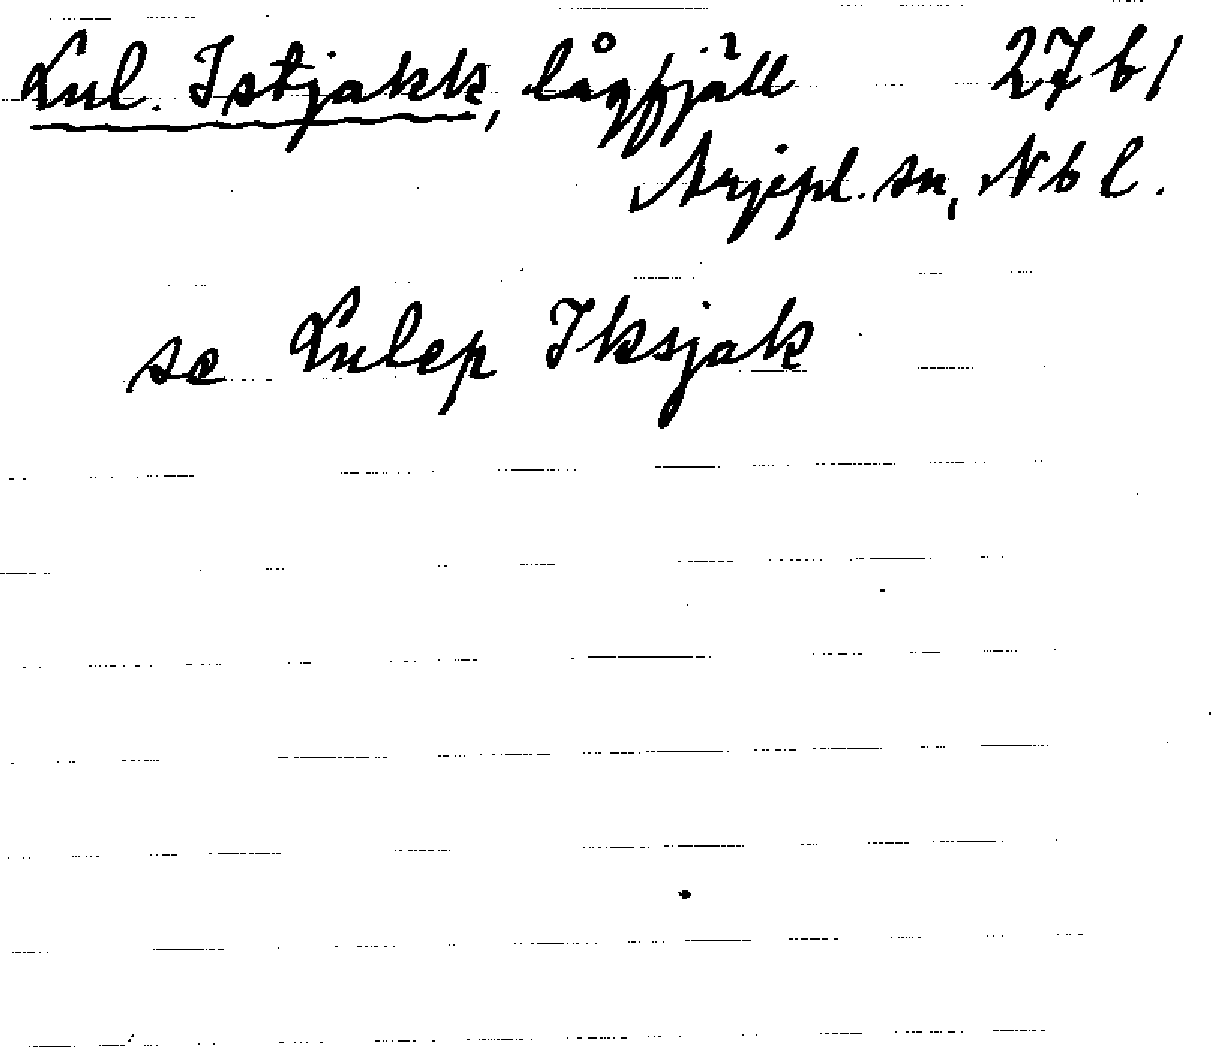 Lul. Istjakk, lågfjäll 27 b 1
Arjepl. sn, Nb l.
se Lulep Iksjak